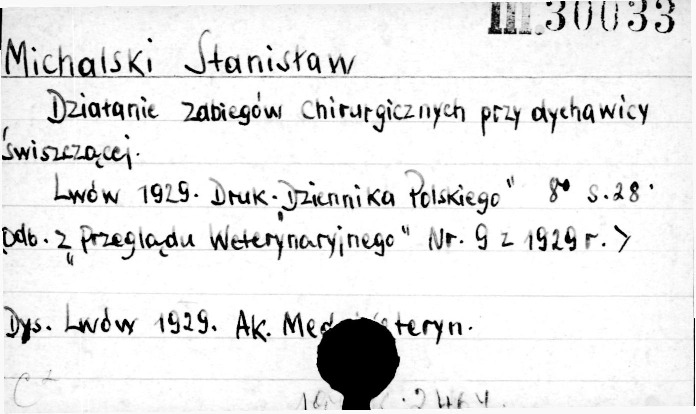 III.30033
Michalski Stanisław
Działanie zabiegów chirurgicznych przy dychawicy
świszczącej.
Lwów 1929. Druk. „Dziennika Polskiego" 8° s. 28.
Odb. z „Przeglądu Weterynaryjnego" Nr. 9 z 1929 r. >
Dys. Lwów 1929. Ak. Med. Weteryn.